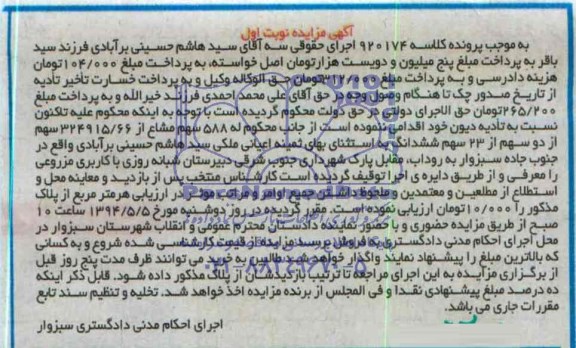 آگهی مزایده نوبت اول
به موجب پرونده کلاسه ۹۲۰۱۷۴ اجرای حقوقی سه آقای سید هاشم حسینی برآبادی فرزند سید
باقر به پرداخت مبلغ پنج میلیون و دویست هزارتومان اصل خواسته، به پرداخت مبلغ ۱۰۴/۰۰۰تومان
هزینه دادرسی و به پرداخت مبلغ ۳۱۲/۰۰۰تومان حق الوکاله وکیل و به پرداخت خسارت تأخیر تأدیه
از تاریخ صدور چک تا هنگام وصول وجه در حق آقای علی محمد احمدی فرزند خیرالله و به پرداخت مبلغ
۲۶۵/۲۰۰تومان حق الاجرای دولتی در حق دولت محکوم گردیده است با توجه به اینکه محکوم علیه تاکنون
نسبت به تأدیه دیون خود اقدامی ننموده است از جانب محکوم له ۵۸۸ سهم مشاع از ۳۲۴۹۱۵/۶۶ سهم
از دو سهم از ۲۳ سهم ششدانگ به استثنای بهای ثمنیه اعیانی ملکی سید هاشم حسینی برآبادی واقع در
جنوب جاده سبزوار به روداب، مقابل پارک شهرداری جنوب شرقی دبیرستان شبانه روزی با کاربری مزروعی
را معرفی و از طریق دایره ی اجرا توقیف گردیده است کارشناس منتخب پس از بازدید و معاینه محل و
استطلاع از مطلعین و معتمدین و ملحوظ داشتن جمیع اوامر و مراتب موثر در ارزیابی هرمتر مربع از پلاک
مذکور را ۱۰/۰۰۰تومان ارزیابی نموده است. مقرر گردیده در روز دوشنبه مورخ ۱۳۹۴/۵/۵ ساعت ۱۰
صبح از طریق مزایده حضوری و با حضور نماینده دادستان محترم عمومی و انقلاب شهرستان سبزوار در
محل اجرای احکام مدنی دادگستری به فروش برسد مزایده از قیمت کارشناسی شده شروع و به کسانی
که بالاترین مبلغ را پیشنهاد نمایند واگذار خواهد شد طالبین به خرید می توانند ظرف مدت پنج روز قبل
از برگزاری مزایده به این اجرای مراجعه تا ترتیب بازدیدشان از پلاک مذکور داده شود. قابل ذکر اینکه
ده درصد مبلغ پیشنهادی نقدا و فی المجلس از برنده مزایده اخذ خواهد شد. تخلیه و تنظیم سند تابع
مقررات جاری می باشد.
اجرای احکام مدنی دادگستری سبزوار